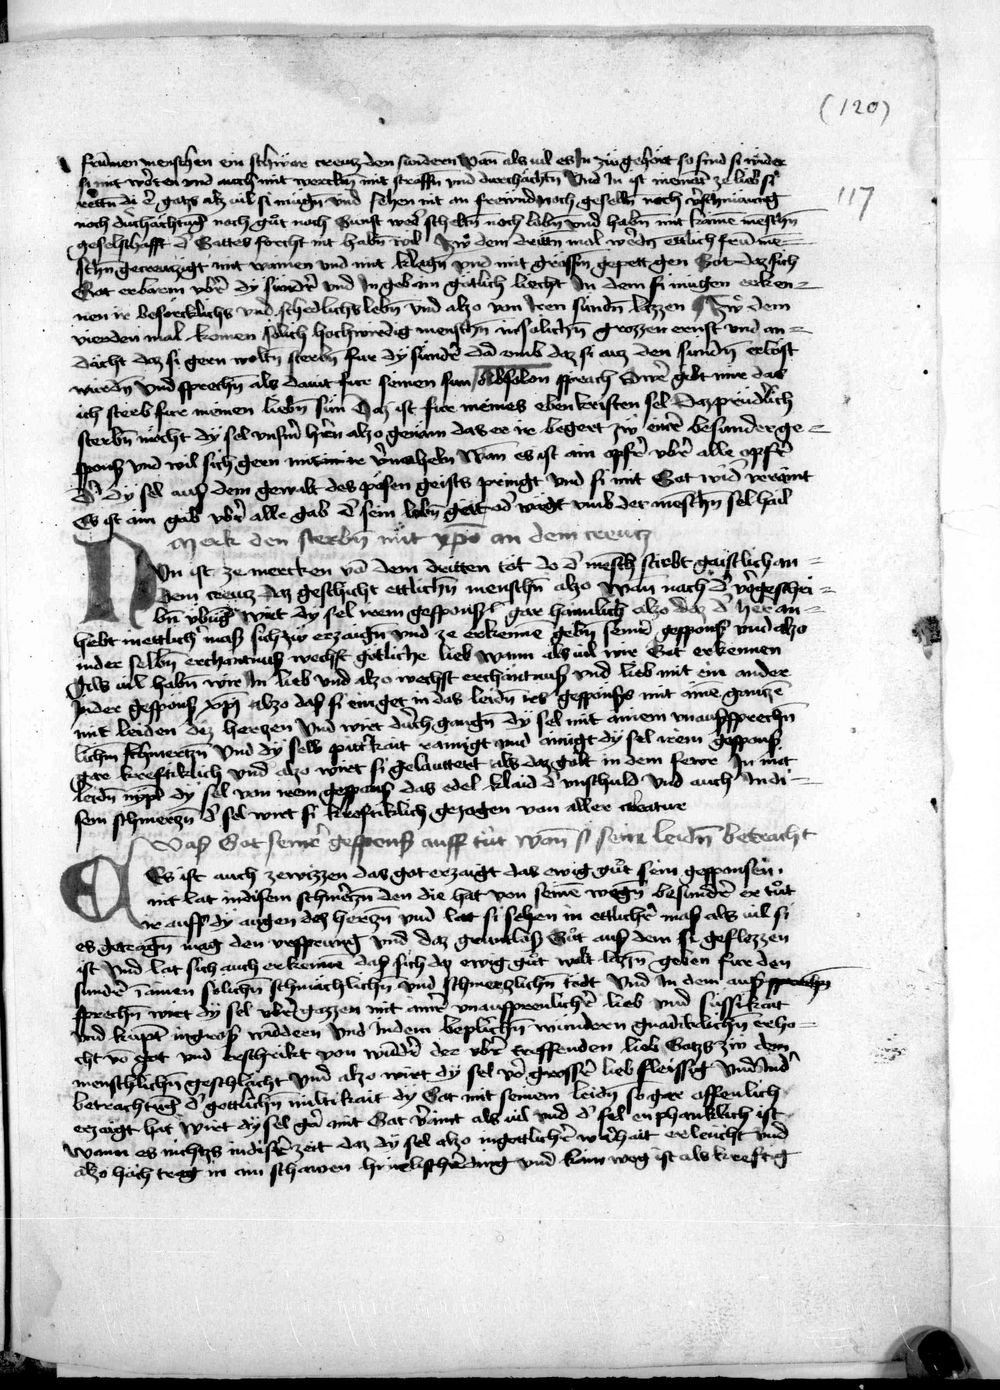 (120)
117
frumen menschen ein schwär creucz den sundern Wan als uil es In zw gehört so sind si wider
si mit worten und auch mit werckn mit straffn und durchächtn Und In ist ze lieb si
rettn di er gotz alz uil si mugn und sehen nit an frewnd noch geselln noch
noch durchächtung noch gut noch Gunst weder scheltn noch lobn Und habn mit kaime menschn
geselschafft der Gottes forcht nit habn wil Zw dem dritn mal werdn ettlich frum me=
schn gecreuczigt mit wainen und mit klagn und mit grossm gepett gen Got daz sich
Got erbarem uber dy sunder und In geb ain götlich liecht In dem si mugen erken=
nen ir besorcklichs und schedlichs lebn Und alzo von Iren sundn lazzen Zw dem
vierden mal komen solich hochwirdig menschn in solichn grozzen ernst und an=
dacht daz si gern woltn sterbn fur dy sunder und daz si auz den sundn erlost
wurdn Und sprechn als dauit fur seinen sun Absolon sprach Wer gibt mir das
ich sterb fur meinen liebn sun Daz ist fur meines eben kristen sel Daz
sterbn macht dy sel unserm hern alzo genäm das er ir begert zw einer besunder ge=
sponß und wil sich gern mit ir vermaheln Wan es ist ain opfer uber alle opfer
Der dy sel auß dem gewalt des posen geists pringt Und si mit Got wider veraint
Es ist ain gab uber alle gab der sein lebn geit oder wagt umb der menschn sel hail
Merk den sterbn mit xpo an dem creucz
Nun ist ze mercken von dem dritten tot do der mensch stirbt gaistlich an=
dem creucz daz geschicht ettlichn menschn alzo Wan nach der vorgeschri=
bn ubung wirt dy sel irem gesponß gar haimlich alzo daz der her an=
hebt mettlicher maß sich zw erzaign und ze erkenne gebn seiner gesponß und alzo
in der selbn erchantnuß wechst gotliche lieb wann als uil wir Got erkennen
Als uil habn wir In lieb Und alzo wechst erchantnuß und lieb mit ein ander
In der gesponß xpi alzo daß si eingeet in das leidn irs gesponß mit aine gancze
mit leiden des herczen Und wirt durch gangn dy sel mit ainem unaußsprechn
lichn schmerczn Und dy selb pitterkait rainigt und ainigt dy sel irem gesponß
gar kreftiklich und alzo wirt si gelauttert als daz golt in dem fewr In mit
leidn nympt dy sel von irem gesponß das edel klaid der unschuld Und auch in di=
sem schmerczn der sel wirt si kreftiklich geczogen von aller creatur
Waß Got seiner gesponß auff tut wan si sein leidn betracht
Es ist auch ze wizzen das got erzaigt das ewig gut sein gesponsen
mit lat in disem schmerczn den die hat von seine wegn besunder er tut
ir auff dy augen dez herczn und lat si sehen in ettlicher maß als uil si
es getragn mag den ursprung Und daz gruntloß Gut auß dem si geflozzen
ist Und lat sich auch erkenne daß sich daz ewig gut wolt lazzn geben fur den
sunder in ainen solichn schmachlichn und schmerczlichn todt Und In dem auß sprechn
sprechn wirt dy sel ubergozzen mit ainer unaussprechlicher lieb und sussikait
und kumpt in groß wundern Und In dem wundern erho=
cht von got und erschrikt von wunder der uber treffenden lieb Gotzs zw dem
menschlichn geschlächt Und alzo wirt dy sel von grosser lieb fleissig Und in der
betrachtung der gottlichn miltikait dy Got mit seinem leidn so gar offenlich
erzaigt hat wirt dy sel gar mit Got veraint als uil und der sel enphänklich ist
Wann es nichtzs in diser zeit daz dy sel alzo in gottlicher warhait erleucht und
alzo hoch trag in ain schawen himlischer ding und kain weg ist als kreftig